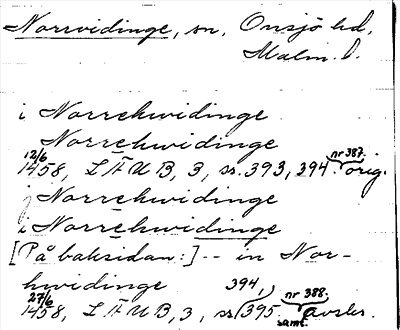 Norrvidinge, sn, Onsjö hd,
Malm. l.
i Norrehwidinge
Norrehwidinge
12/6 nr 387.
1458, LÄUB, 3, sr. 393, 394. orig.
j Norrehwidinge
i Norrehwidinge
[På baksidan:] -- in Nor-
hwidinge
27/6 394, nr 388.
1458, LÄUB, 3, sr. 395. avskr.
samt.